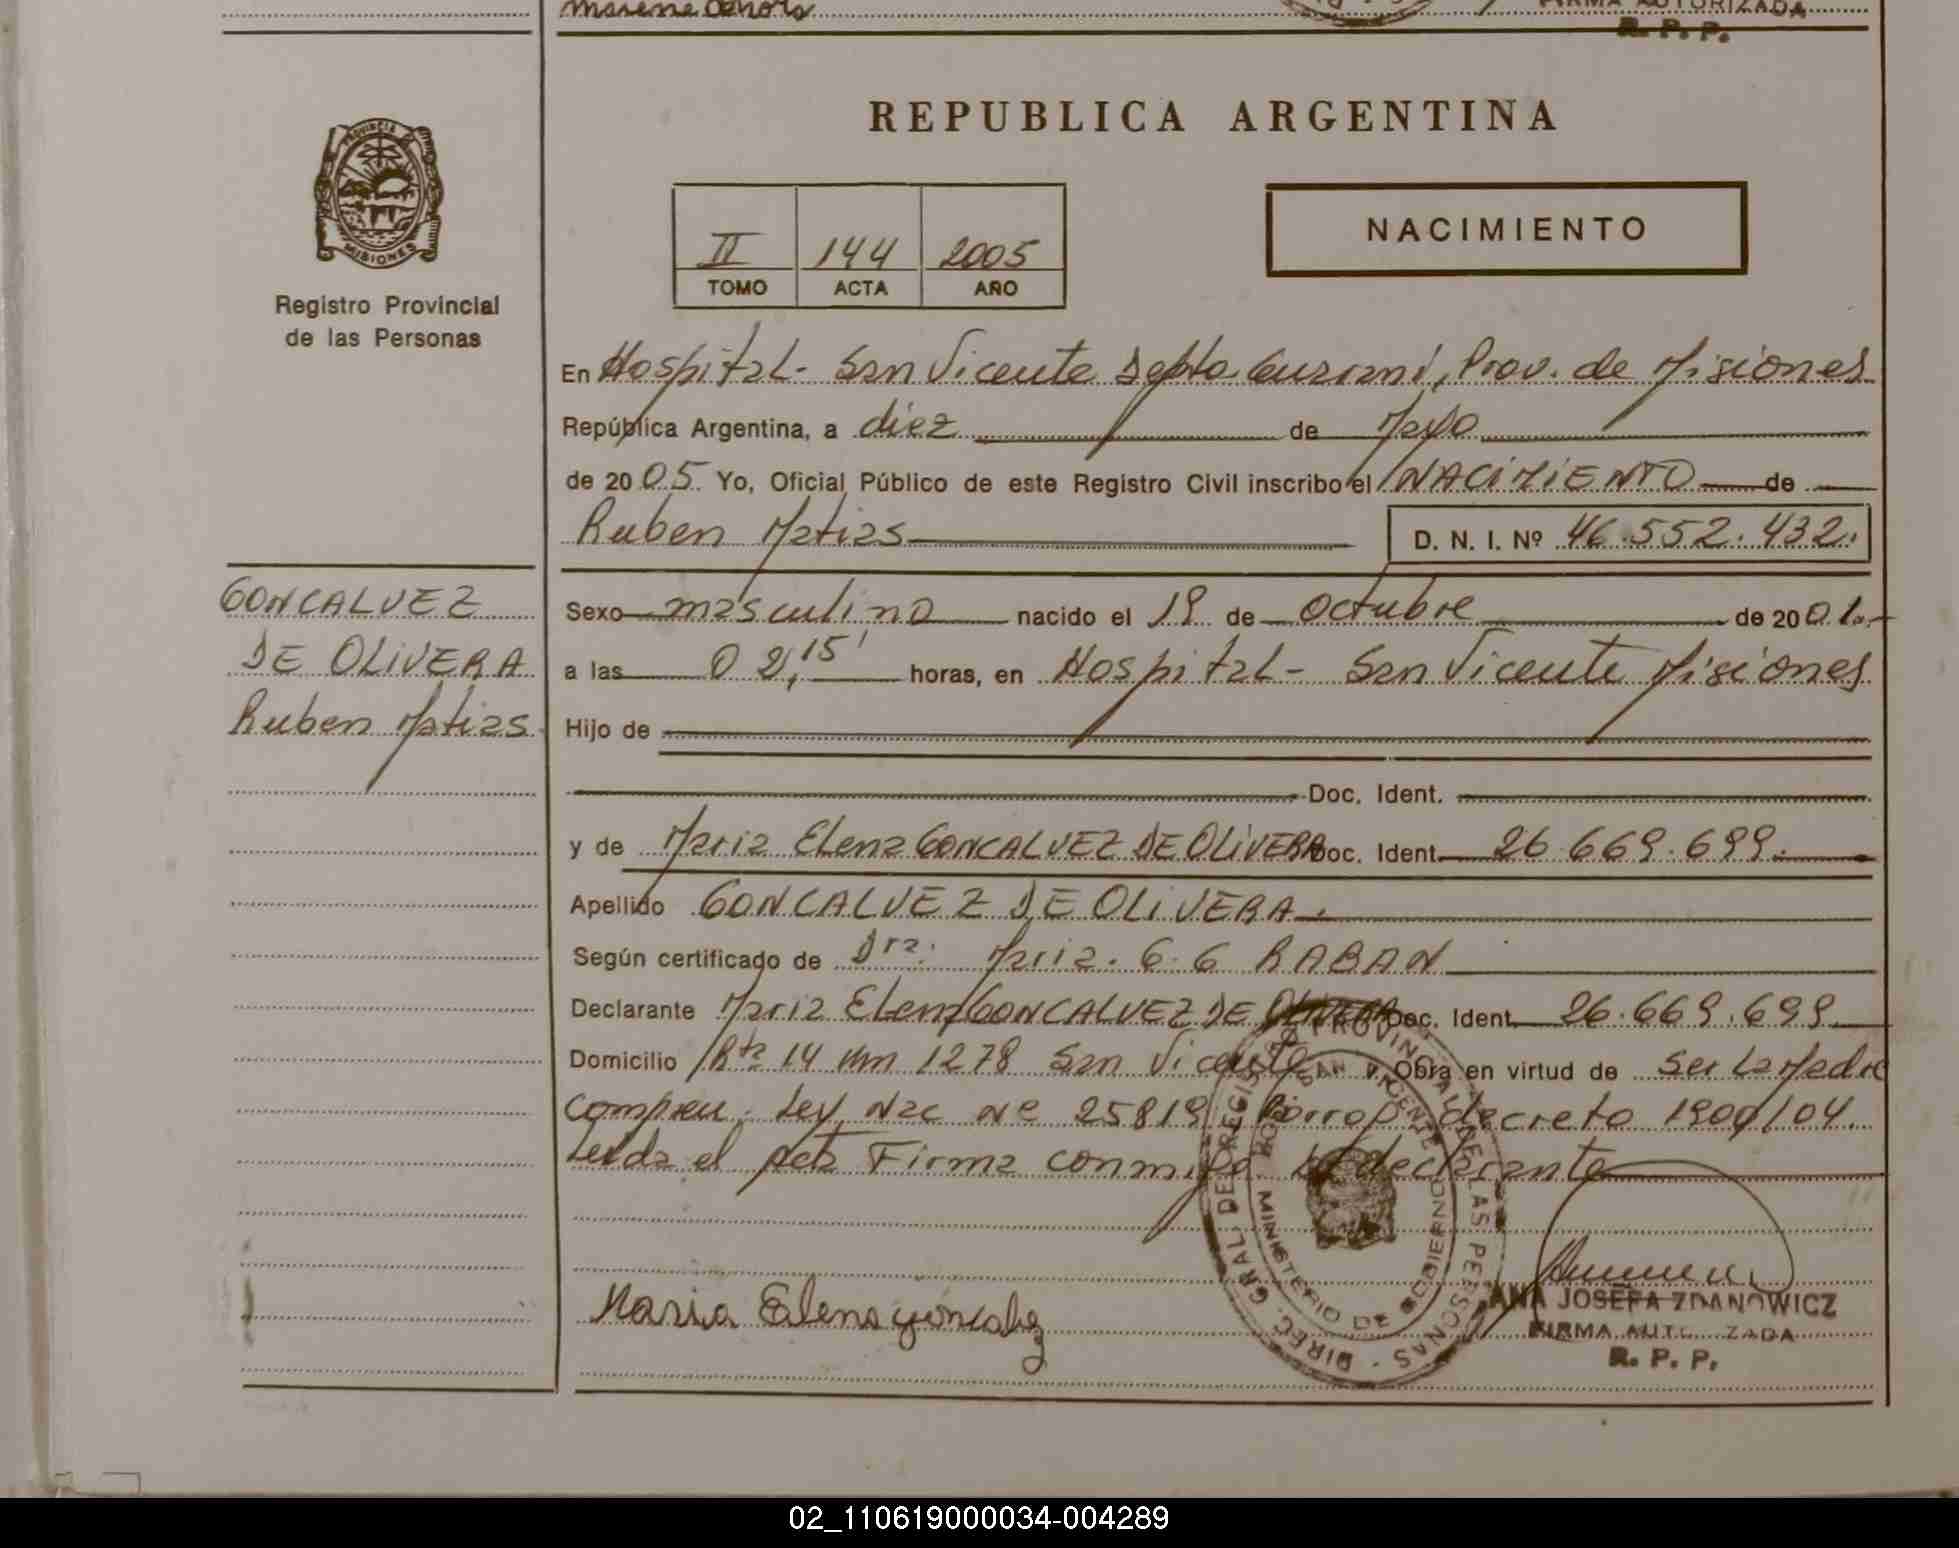 Morene
FIRMA AUTORIZADA
R. P. P.
PROVINCIA DE
MISIONES
Registro Provincial
de las Personas
REPUBLICA ARGENTINA
II 144 2005
TOMO ACTA AÑO
NACIMIENTO
En Hospital- San Vicente Depto Guarani, Prov. de Misiones
República Argentina, a diez de Mayo
de 2005. Yo, Oficial Público de este Registro Civil inscribo el NACIMIENTO de
Ruben Matias D. N. I. Nº 46.552.432.
GONCALVEZ
DE OLIVERA
Ruben Matias
Sexo masculino nacido el 19 de octubre de 2001.-
a las 02,15' horas, en Hospital- San Vicente Misiones
Hijo de
Doc. Ident.
y de Maria Elena GONCALVEZ DE OLIVERA Doc. Ident. 26.669.699.
Apellido GONCALVEZ DE OLIVERA.
Según certificado de Dra. Maria. G. G RABAN
Declarante Maria Elena GONCALVEZ DE OLIVERA Doc. Ident. 26.669.699
Domicilio Rta 14 km 1278 San Vicente Obra en virtud de ser La Madre
Ley Nac Nº 25819 Prorrog. decreto 1900/04.
Leida el acta Firma conmigo La declarante
Maria Elena goncalvez
DIREC. GRAL. DE REGISTRO PROVINCIAL DE LAS PERSONAS
HOSPITAL SAN VICENTE
MINISTERIO DE GOBIERNO
ANA JOSEFA ZDANOWICZ
FIRMA AUTORIZADA
R. P. P.
02_110619000034-004289